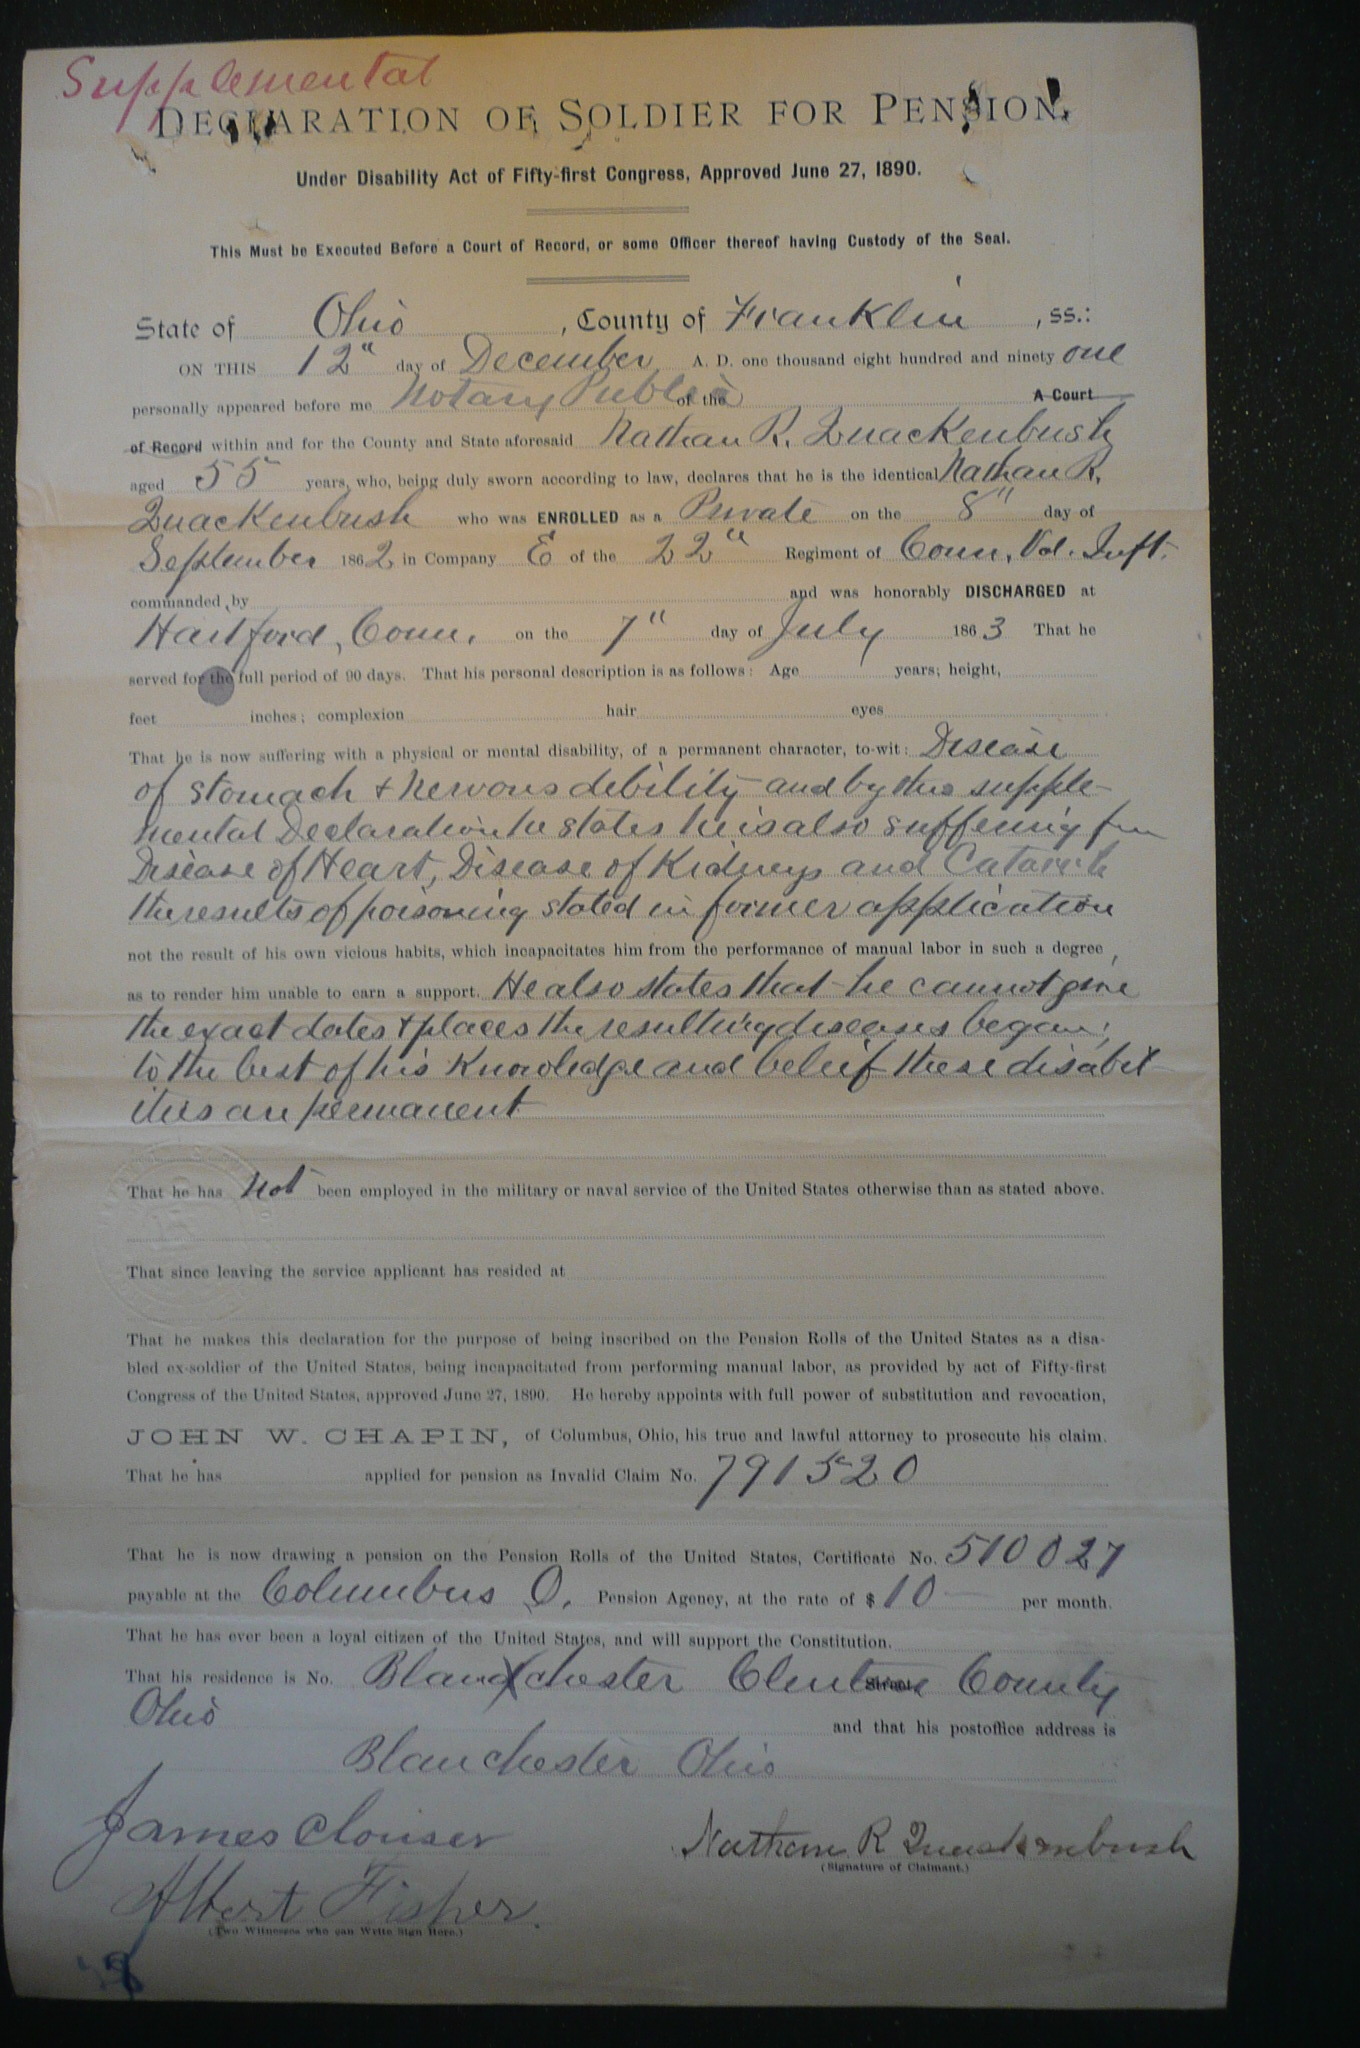 Supplemental
DECLARATION OF SOLDIER FOR PENSION.
Under Disability Act of Fifty-first Congress, Approved June 27, 1890.
This Must be Executed Before a Court of Record, or some Officer thereof having Custody of the Seal.
State of Ohio, County of Franklin, ss.:
ON THIS 12" day of December A. D. one thousand eight hundred and ninety one
personally appeared before me Notary Public of the A Court
of Record within and for the County and State aforesaid Nathan R. Quackenbush
aged 55 years, who, being duly sworn according to law, declares that he is the identical Nathan R.
Quackenbush who was ENROLLED as a Private on the 8" day of
September 1862 in Company E of the 22" Regiment of Conn. Vol. Inft.
commanded by and was honorably DISCHARGED at
Hartford, Conn. on the 7" day of July 1863 That he
served for the full period of 90 days. That his personal description is as follows: Age years; height,
feet inches; complexion hair eyes
That he is now suffering with a physical or mental disability, of a permanent character, to-wit: Disease
of stomach & Nervous debility and by this supple-
mental Declaration he states he is also suffering from
Disease of Heart, Disease of Kidneys and Catarrh
the results of poisoning stated in former application
not the result of his own vicious habits, which incapacitates him from the performance of manual labor in such a degree,
as to render him unable to earn a support. He also states that he cannot give
the exact dates & places the resulting diseases began;
to the best of his knowledge and beleif these disabil
ities are permanent
That he has not been employed in the military or naval service of the United States otherwise than as stated above.
That since leaving the service applicant has resided at
That he makes this declaration for the purpose of being inscribed on the Pension Rolls of the United States as a disa-
bled ex-soldier of the United States, being incapacitated from performing manual labor, as provided by act of Fifty-first
Congress of the United States, approved June 27, 1890. He hereby appoints with full power of substitution and revocation,
JOHN W. CHAPIN, of Columbus, Ohio, his true and lawful attorney to prosecute his claim.
That he has applied for pension as Invalid Claim No. 791520
That he is now drawing a pension on the Pension Rolls of the United States, Certificate No. 510027
payable at the Columbus O. Pension Agency, at the rate of $ 10 — per month.
That he has ever been a loyal citizen of the United States, and will support the Constitution.
That his residence is No. Blanchester Clinton Street County
Ohio and that his postoffice address is
Blanchester Ohio
James Clouser
Nathan R Quackenbush
(Signature of Claimant.)
Albert Fisher.
(Two Witnesses who can Write Sign Here.)